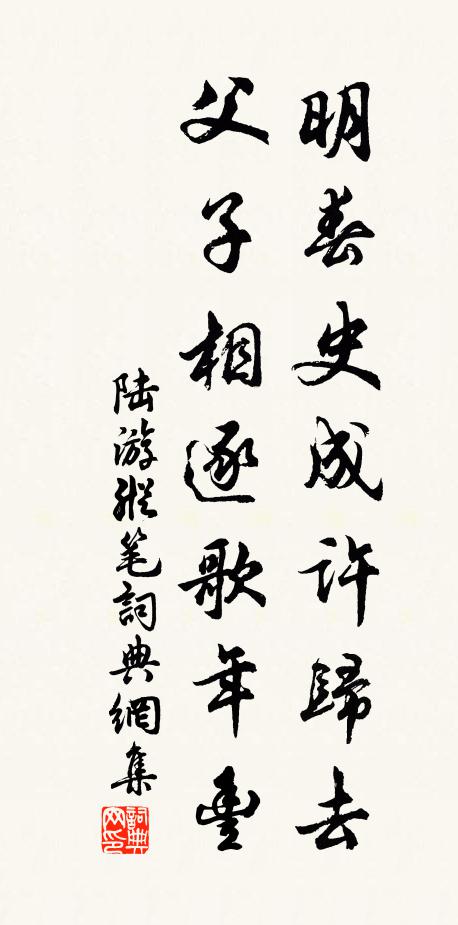 明春史成許歸去
父子相逐歌年豐
陆游縱笔詞典網集
詞典网印